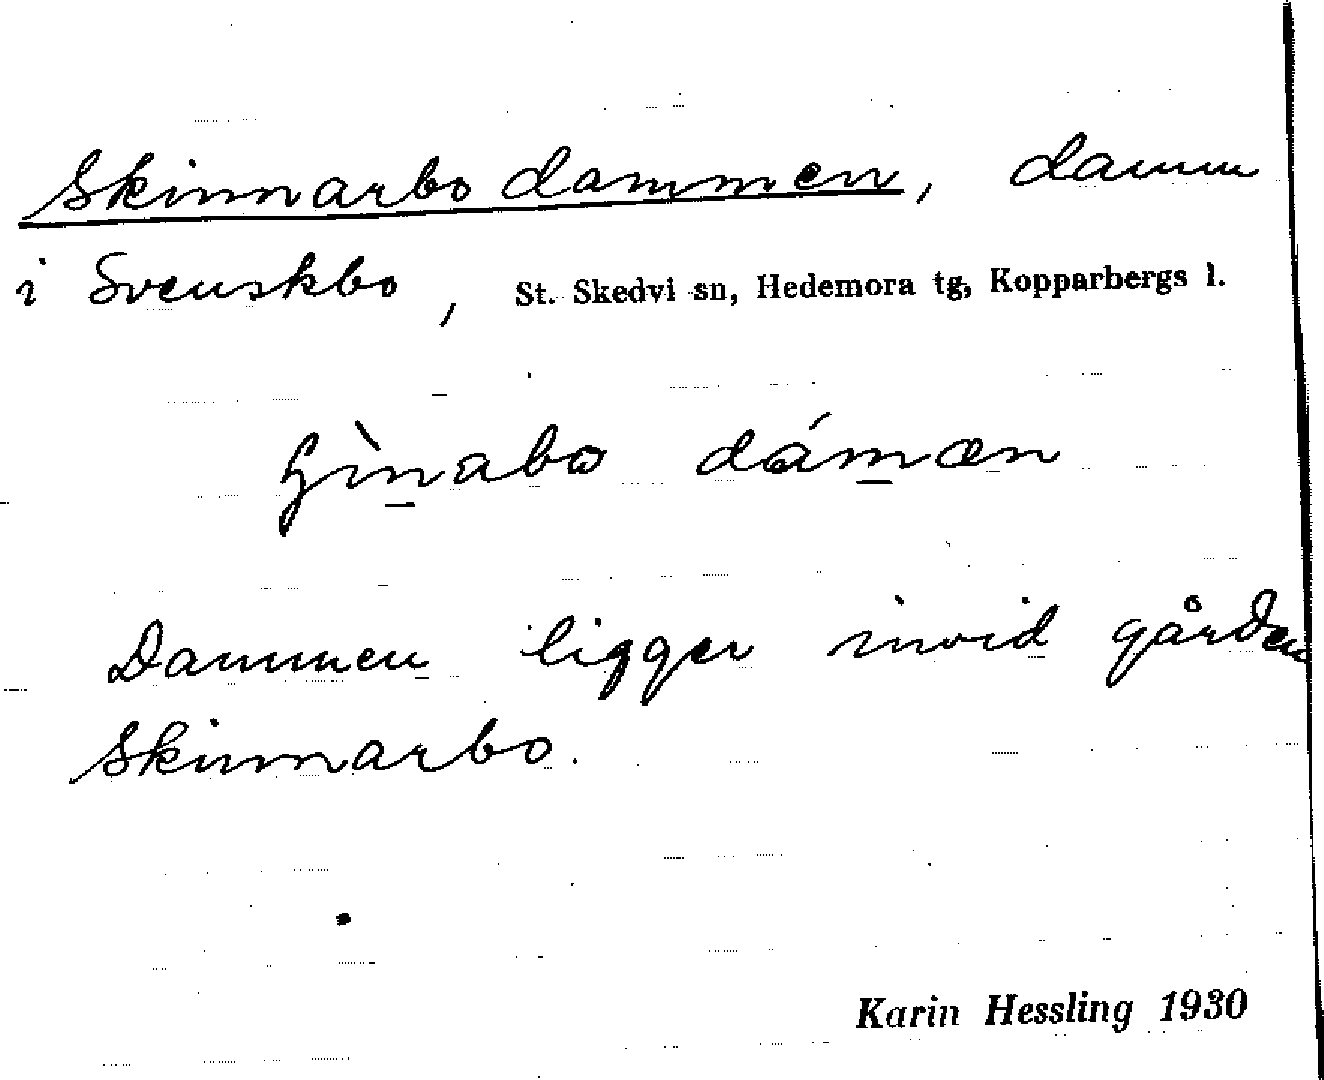 Skinnarbodammen, damm
i Svenskbo, St. Skedvi sn, Hedemora tg, Kopparbergs l.
dámæn
Dammen ligger invid gården
Skinnarbo.
Karin Hessling 1930